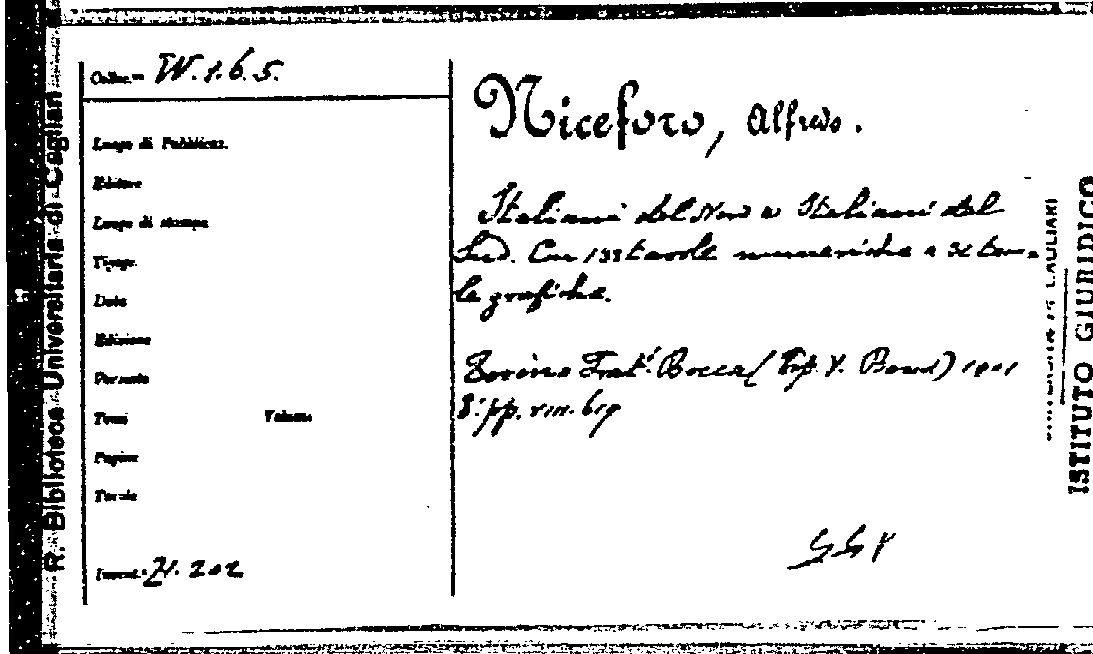 R. Biblioteca Universitaria di Cagliari
Colloc.= W.1.6.5.
Luogo di Pubblicaz.
Editore
Luogo di stampa
Tipogr.
Data
Edizione
Formato
Tomi Volume
Pagine
Tavole
Invent. 202
Niceforo, Alfredo.
Italiani del Nord e Italiani del
Sud. Con 133 tavole numeriche e tavo=
le grafiche.
Torino Frat. Bocca (Tip. V. Bona) 1901
8° pp. VIII. 619
CAGLIARI
ISTITUTO GIURIDICO